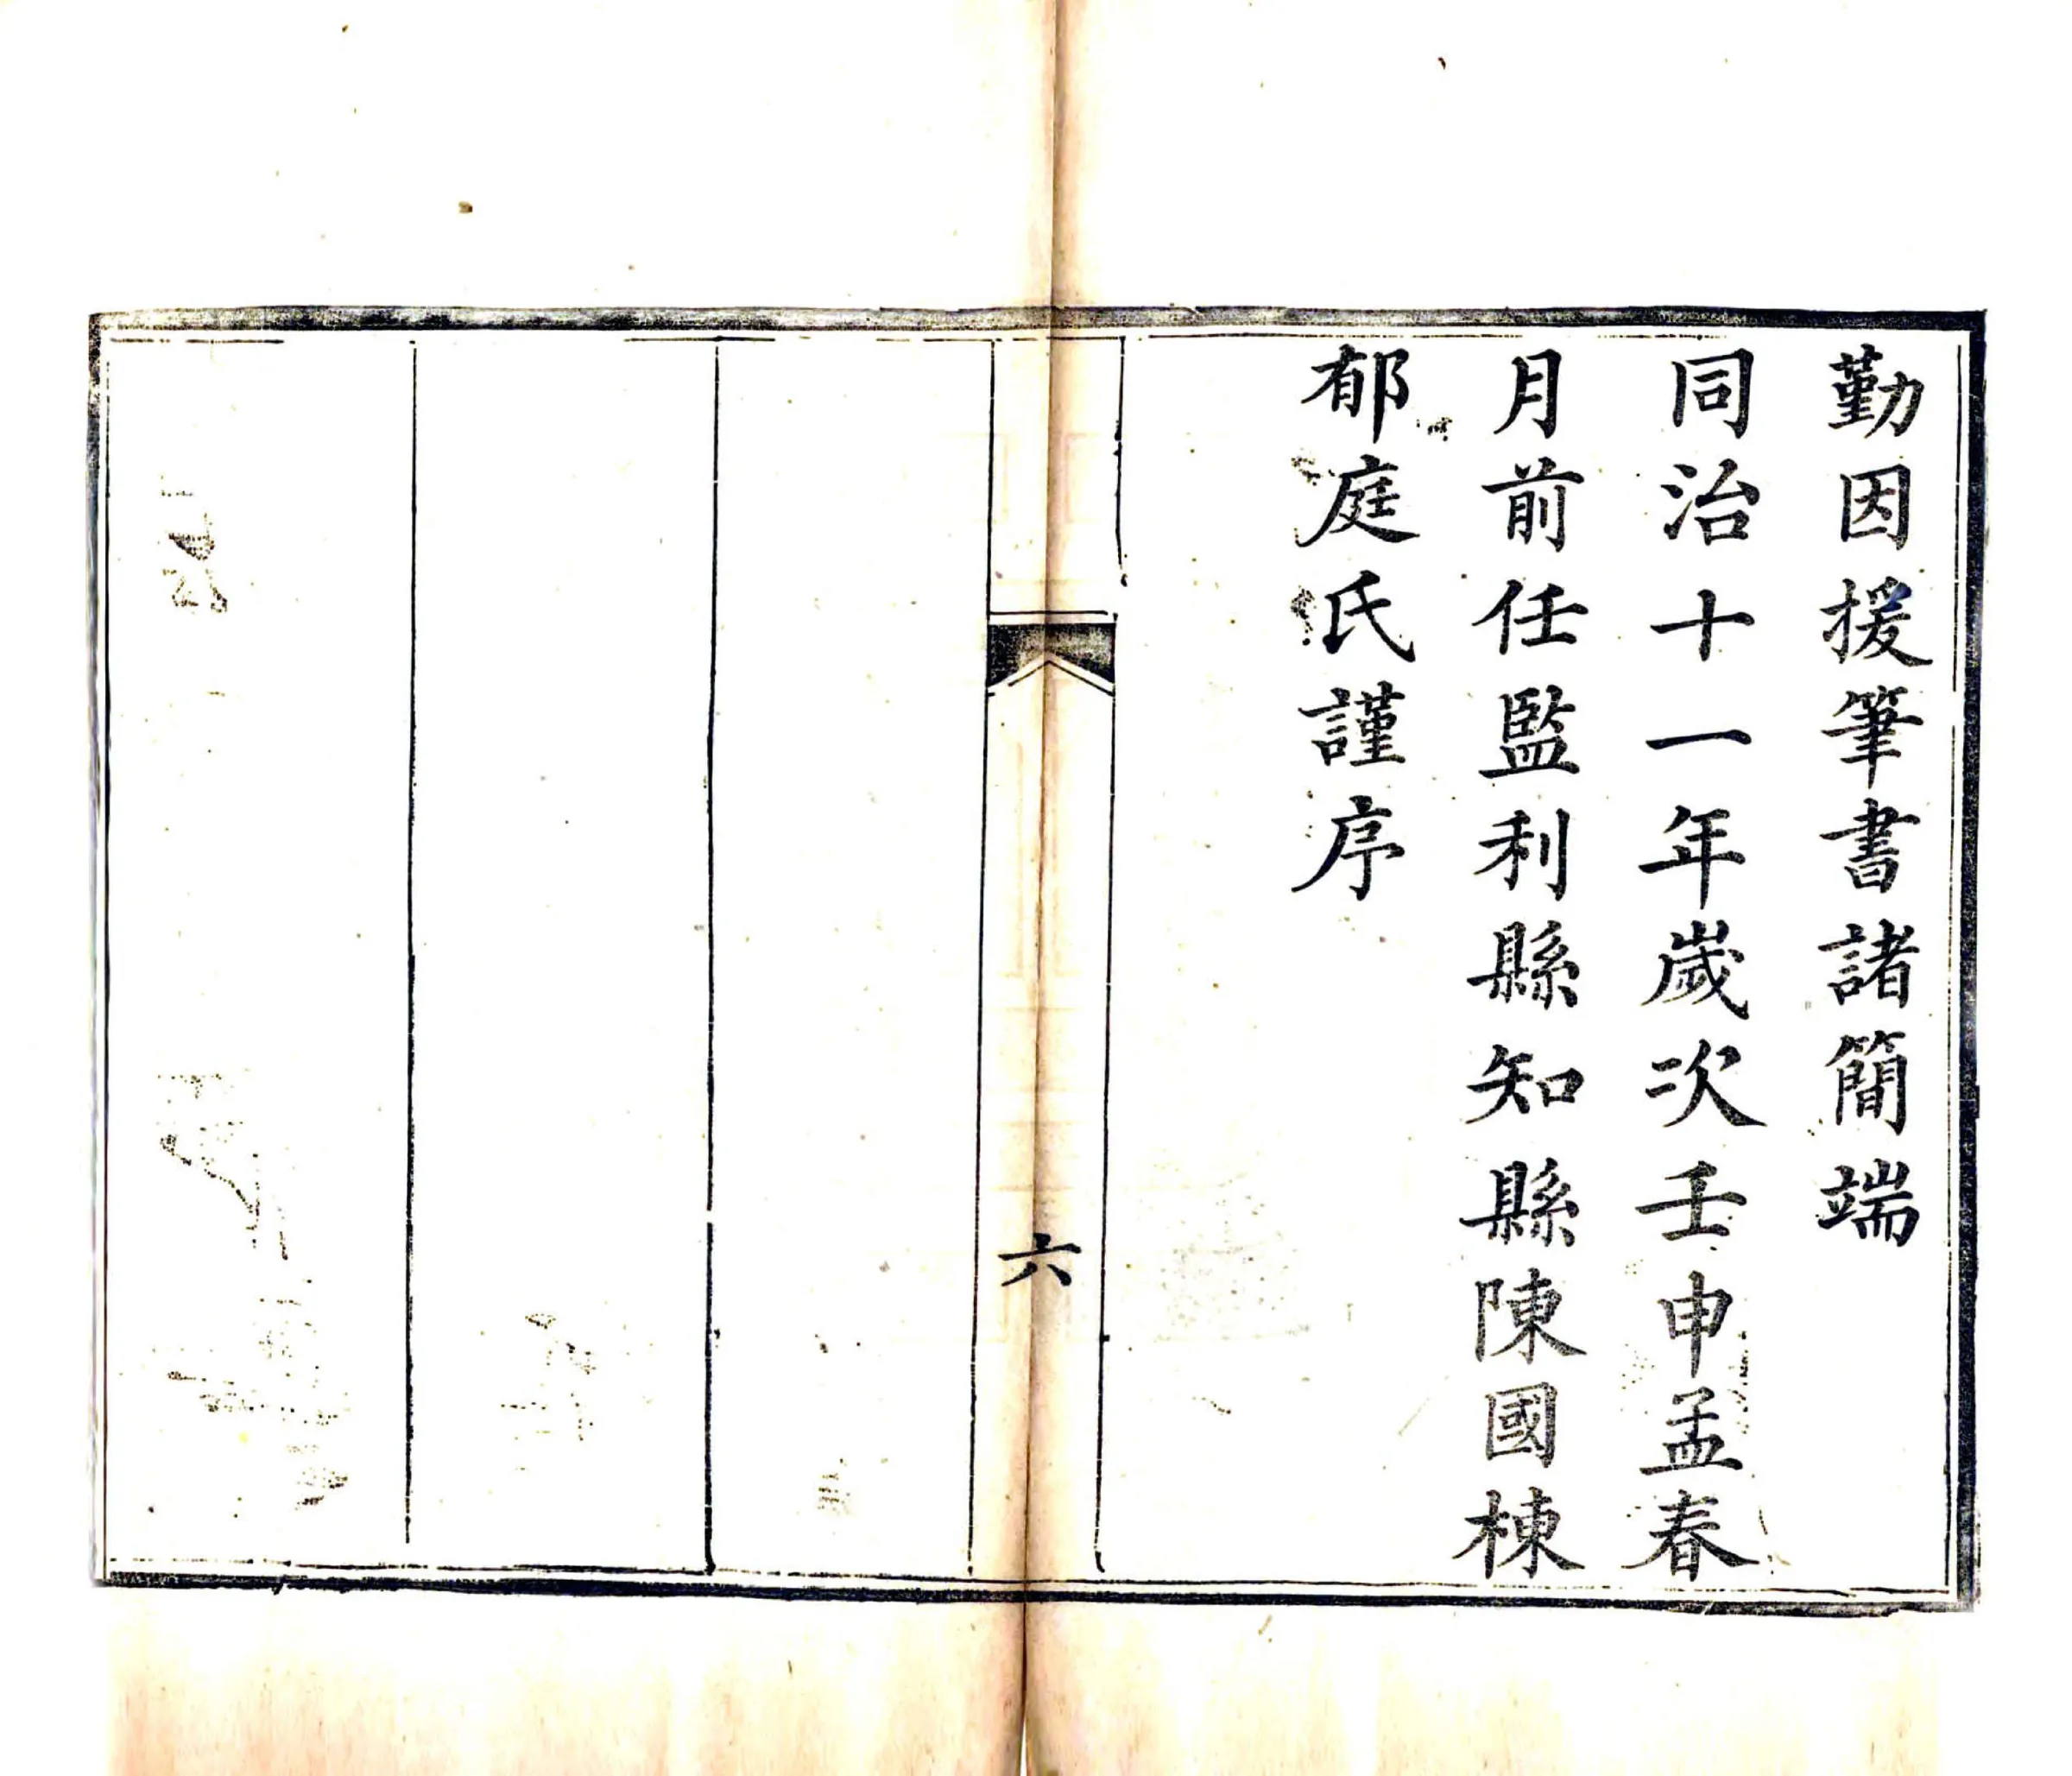 勤因援筆書諸簡端
同治十一年歲次壬申孟春
月前任監利縣知縣陳國棟
郁庭氏謹序
六